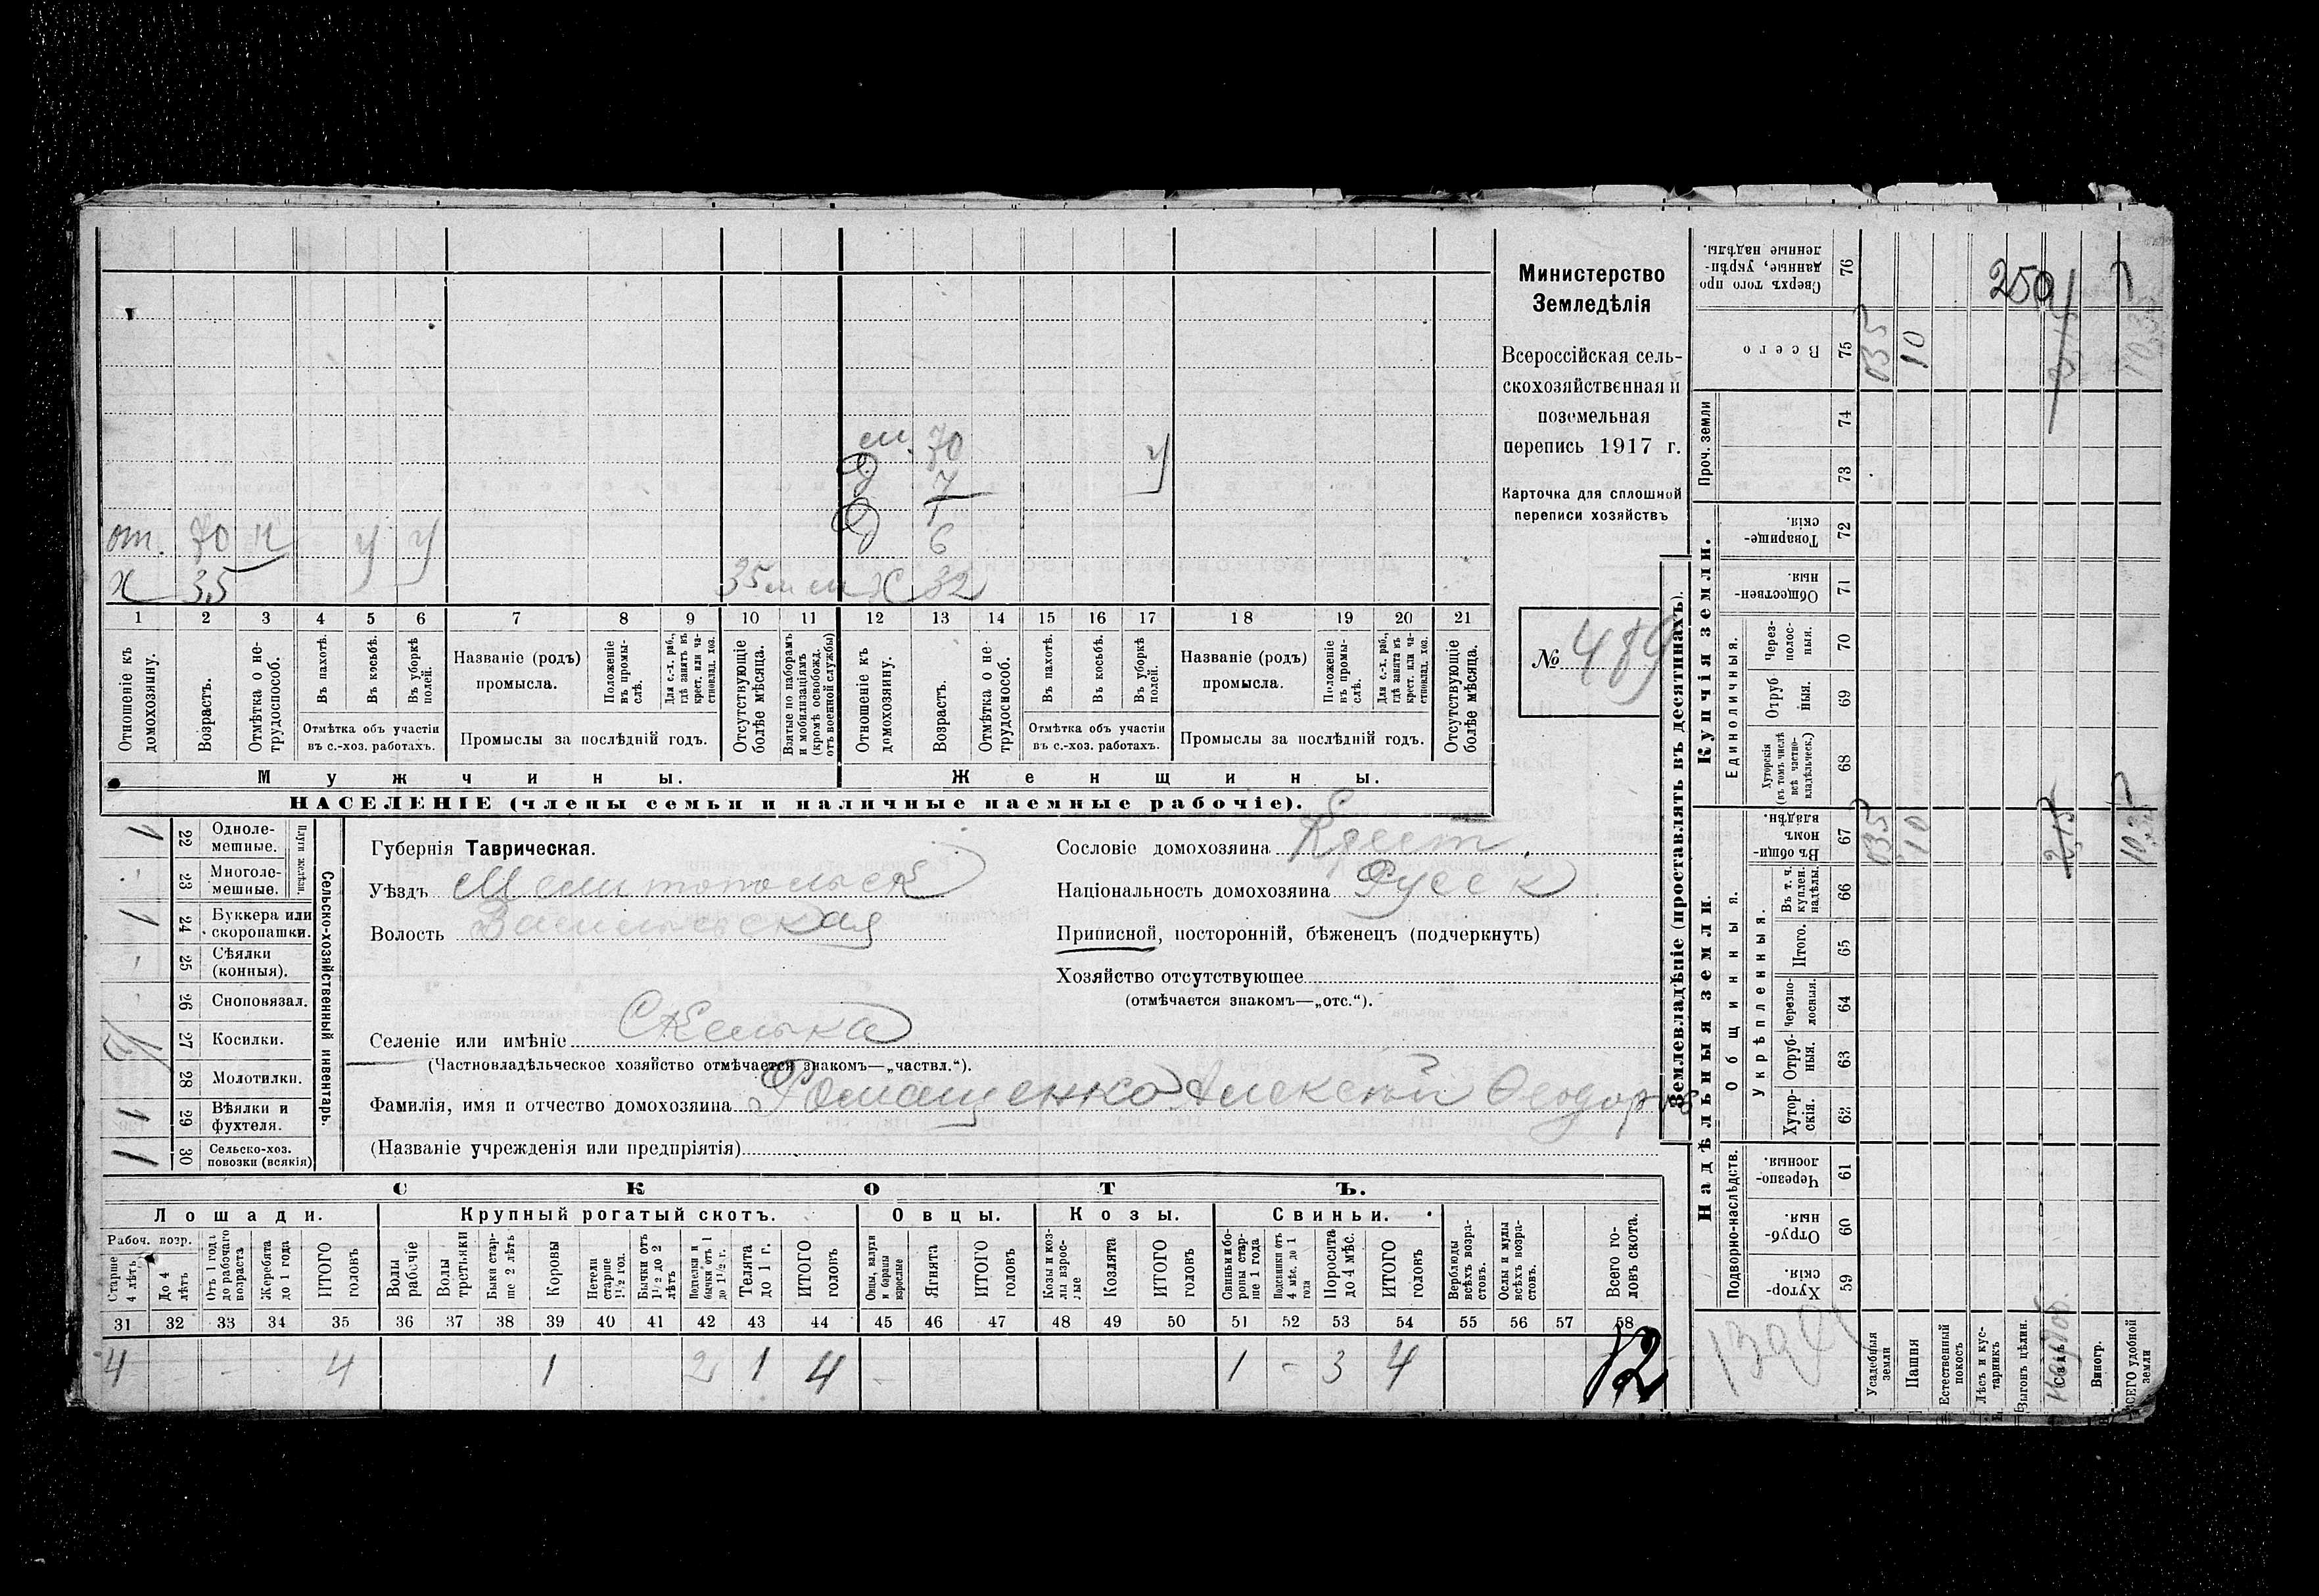 Министерство
Земледѣлія
Всероссійская сель-
скохозяйственная и
поземельная
перепись 1917 г.
Карточка для сплошной
переписи хозяйствъ
№ 489
м. 70
Д 7 у
Д 6
от. 70 н у у
х 35 35 м х 32
1 2 3 4 5 6 7 8 9 10 11 12 13 14 15 16 17 18 19 20 21
Отношеніе къ домохозяину.
Возрастъ.
Отмѣтка о не-трудоспособ.
Въ пахотѣ.
Въ косьбѣ.
Въ уборкѣ полей.
Отмѣтка объ участіи
въ с.-хоз. работахъ.
Названіе (родъ)
промысла.
Положеніе въ промы-слѣ.
Для с.-х. раб., гдѣ занятъ въ крест. или ча-стновлад. хоз.
Промыслы за послѣдній годъ.
Отсутствующіе болѣе мѣсяца.
Взятые по наборамъ и мобилизаціямъ (кромѣ освобожд. отъ военной службы)
Отношеніе къ домохозяину.
Возрастъ.
Отмѣтка о не-трудоспособ.
Въ пахотѣ.
Въ косьбѣ.
Въ уборкѣ полей.
Отмѣтка объ участіи
въ с.-хоз. работахъ.
Названіе (родъ)
промысла.
Положеніе въ промы-слѣ.
Для с.-х. раб., гдѣ занята въ крест. или ча-стновлад. хоз.
Промыслы за послѣдній годъ.
Отсутствующіе болѣе мѣсяца.
Мужчины. Женщины.
НАСЕЛЕНІЕ (члены семьи и наличные наемные рабочіе).
Сельско-хозяйственный инвентарь.
Плуги желѣзн.
1 22 Однолемешные.
- 23 Многолемешные.
1 24 Буккера или скоропашки.
- 25 Сѣялки (конныя).
- 26 Сноповязал.
27 Косилки.
28 Молотилки.
1 29 Вѣялки и фухтеля.
1 30 Сельско-хоз. повозки (всякія)
Губернія Таврическая.
Уѣздъ Мелитопольск
Волость Васильевская
Селеніе или имѣніе Скелька
(Частновладѣльческое хозяйство отмѣчается знакомъ—„частвл.“).
Фамилія, имя и отчество домохозяина Ромащенко Алексѣй Ѳеодоров
(Названіе учрежденія или предпріятія)
Сословіе домохозяина Крест.
Національность домохозяина Русск
Приписной, посторонній, бѣженецъ (подчеркнуть)
Хозяйство отсутствующее
(отмѣчается знакомъ—„отс.“).
СКОТЪ.
Лошади. Крупный рогатый скотъ. Овцы. Козы. Свиньи.
Рабоч. возр.
Старше 4 лѣтъ
До 4 лѣтъ
Отъ 1 года до рабочаго возраста
Жеребята до 1 года
ИТОГО головъ
Волы рабочіе
Волы третьяки
Быки старше 2 лѣтъ
Коровы
Нетели старше 1½ год.
Бычки отъ 1½ до 2 лѣтъ
Подтелки и бычки отъ 1 до 1½ г.
Телята до 1 г.
ИТОГО головъ
Овцы, валухи и бараны взрослые
Ягнята
ИТОГО головъ
Козы и козлы взрослые
Козлята
ИТОГО головъ
Свиньи и боровы старше 1 года
Подсвинки отъ 4 мѣс. до 1 года
Поросята до 4 мѣс.
ИТОГО головъ
Верблюды всѣхъ возрастовъ.
Ослы и мулы всѣхъ возрастовъ.
Всего головъ скота.
31 32 33 34 35 36 37 38 39 40 41 42 43 44 45 46 47 48 49 50 51 52 53 54 55 56 57 58
4 - - 4 1 2 1 4 - 1 - 3 4 12
Землевладѣніе (проставлять въ десятинахъ).
Надѣльныя земли. Купчія земли. Проч. земли
Подворно-наслѣдств.
Общинныя.
Укрѣпленныя.
Единоличныя.
Сверхъ того проданные, укрѣпленные надѣлы. 76
Всего 75 035 10
74
73
Товарищескія. 72
Общественныя. 71
Черезполосныя. 70
Отрубныя. 69
Хуторскія (въ томъ числѣ всѣ частновладѣльческ.) 68
Въ общинномъ владѣн. 67 035 10 2,15 10,35
Въ т. ч. куплен. надѣлы. 66
Итого. 65
Черезполосныя. 64
Отрубныя. 63
Хуторскія. 62
Черезполосныя. 61
Отрубныя. 60
Хуторскія. 59
250
Усадебныя земли
Пашня
Естественный покосъ
Лѣсъ и кустарникъ
Выгонъ цѣлин.
Неудоб.
Виногр.
ВСЕГО удобной земли